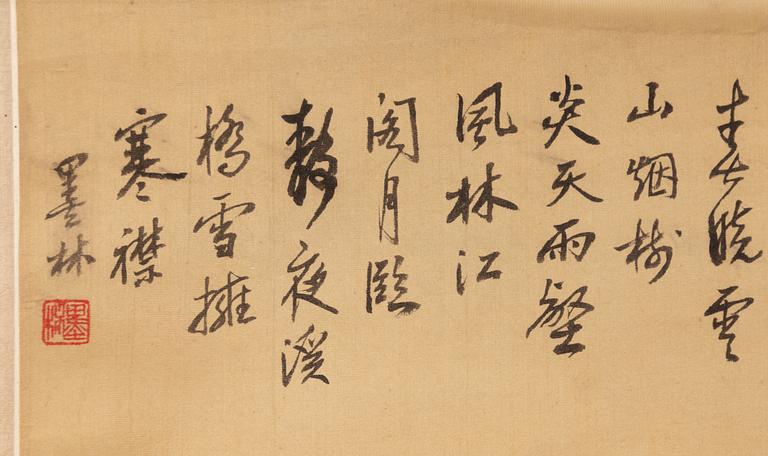 春曉雲
山烟樹
炎天雨壑
風林江
閣月臨
夜溪
橋雪擁
寒襟
墨林
墨林